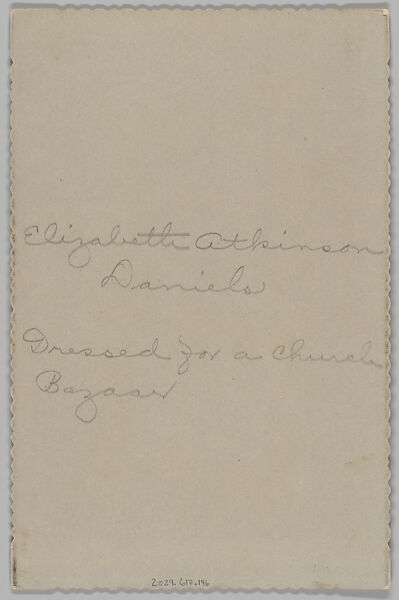 Elizabeth Atkinson
Daniels
Dressed for a Church
Bazaar
2024.610.146